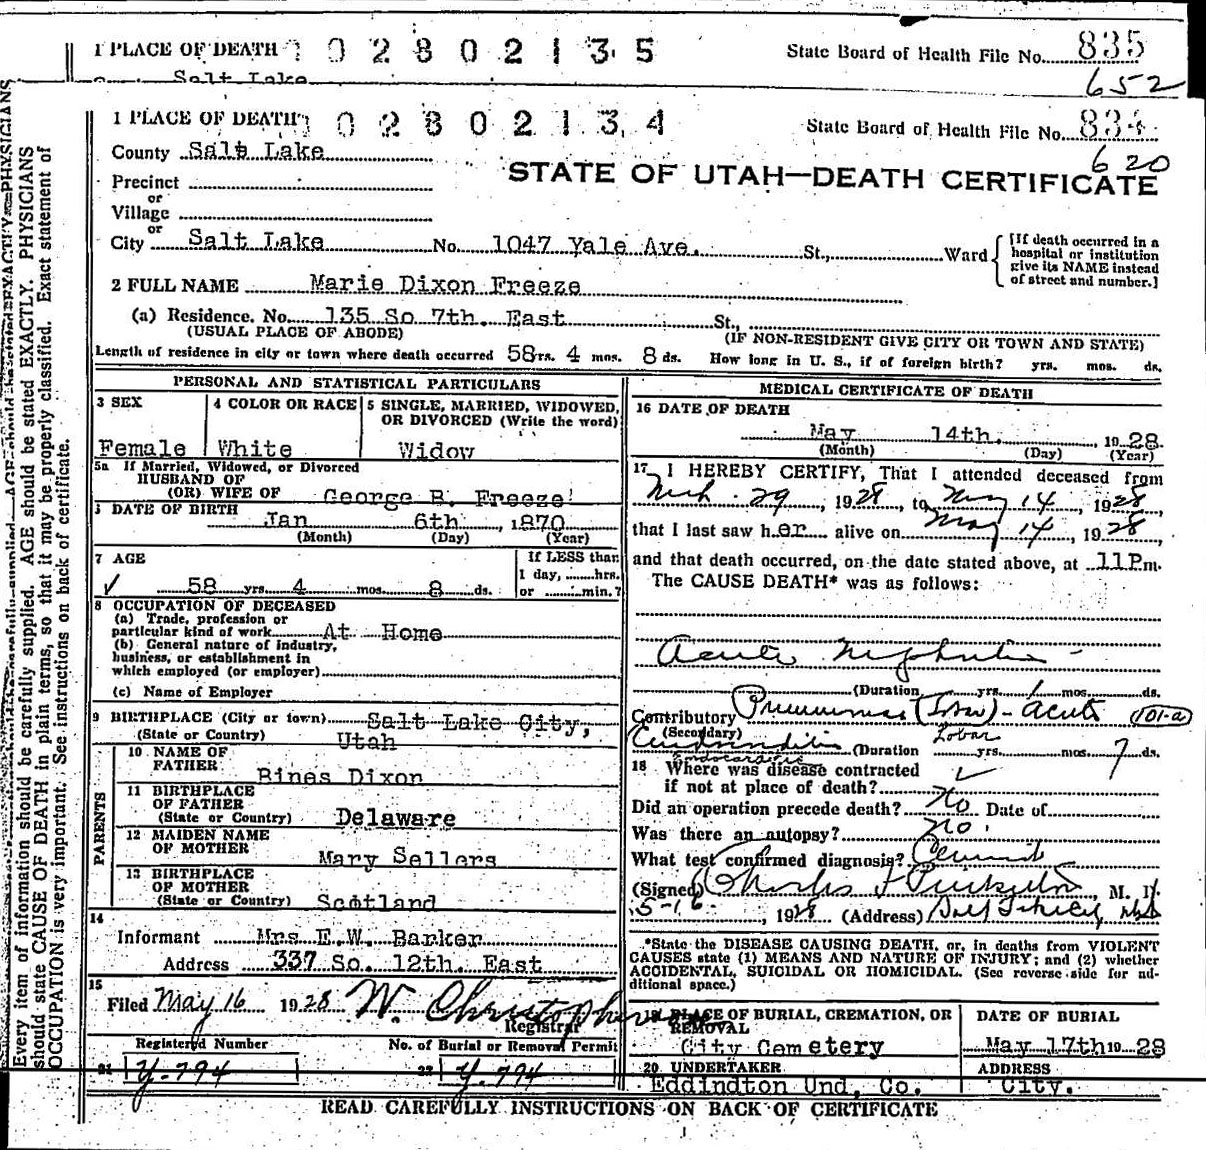 1 PLACE OF DEATH 1 0 2 8 0 2 1 3 5 State Board of Health File No. 835
Salt Lake 652
1 PLACE OF DEATH 1 0 2 8 0 2 1 3 4 State Board of Health File No. 834
County Salt Lake 620
STATE OF UTAH—DEATH CERTIFICATE
Precinct
or
Village
or
City Salt Lake No. 1047 Yale Ave. St., Ward
[If death occurred in a hospital or institution give its NAME instead of street and number.]
2 FULL NAME Marie Dixon Freeze
(a) Residence. No. 135 So 7th. East St.,
(USUAL PLACE OF ABODE) (IF NON-RESIDENT GIVE CITY OR TOWN AND STATE)
Length of residence in city or town where death occurred 58 yrs. 4 mos. 8 ds. How long in U. S., if of foreign birth? yrs. mos. ds.
PERSONAL AND STATISTICAL PARTICULARS
3 SEX 4 COLOR OR RACE 5 SINGLE, MARRIED, WIDOWED, OR DIVORCED (Write the word)
Female White Widow
5a If Married, Widowed, or Divorced
HUSBAND OF
(OR) WIFE OF George B. Freeze
DATE OF BIRTH
Jan 6th, 1870
(Month) (Day) (Year)
7 AGE If LESS than
1 day, hrs.
✓ 58 yrs. 4 mos. 8 ds. or min.?
8 OCCUPATION OF DECEASED
(a) Trade, profession or
particular kind of work At Home
(b) General nature of industry,
business, or establishment in
which employed (or employer)
(c) Name of Employer
9 BIRTHPLACE (City or town) Salt Lake City,
(State or Country) Utah
PARENTS
10 NAME OF
FATHER Bines Dixon
11 BIRTHPLACE
OF FATHER
(State or Country) Delaware
12 MAIDEN NAME
OF MOTHER Mary Sellers
13 BIRTHPLACE
OF MOTHER
(State or Country) Scotland
14
Informant Mrs E.W. Barker
Address 337 So. 12th. East
15
Filed May 16 1928 W. Christopherson
Registrar
Registered Number No. of Burial or Removal Permit
21 Y-794 22 Y-794
MEDICAL CERTIFICATE OF DEATH
16 DATE OF DEATH
May 14th, 1928.
(Month) (Day) (Year)
17 I HEREBY CERTIFY, That I attended deceased from
Mch. 29, 1928, to May 14, 1928,
that I last saw her alive on May 14, 1928,
and that death occurred, on the date stated above, at 11 P.m.
The CAUSE DEATH* was as follows:
Acute Nephritis
(Duration yrs. 1 mos. ds.
Contributory Pneumonia - acute 101-a
(Secondary) Lobar
Endocarditis (Duration yrs. mos. 7 ds.
Endocarditis
18 Where was disease contracted
if not at place of death? ✓
Did an operation precede death? No Date of
Was there an autopsy? No.
What test confirmed diagnosis?
(Signed) Charles M. D.
5-16, 1928 (Address) Salt Lake City
*State the DISEASE CAUSING DEATH, or, in deaths from VIOLENT
CAUSES state (1) MEANS AND NATURE OF INJURY; and (2) whether
ACCIDENTAL, SUICIDAL OR HOMICIDAL. (See reverse side for ad-
ditional space.)
19 PLACE OF BURIAL, CREMATION, OR REMOVAL DATE OF BURIAL
City Cemetery May 17th 1928
20 UNDERTAKER ADDRESS
Eddington Und, Co. City.
READ CAREFULLY INSTRUCTIONS ON BACK OF CERTIFICATE
Every item of information should be carefully supplied. AGE should be stated EXACTLY. PHYSICIANS
should state CAUSE OF DEATH in plain terms, so that it may be properly classified. Exact statement of
OCCUPATION is very important. See instructions on back of certificate.